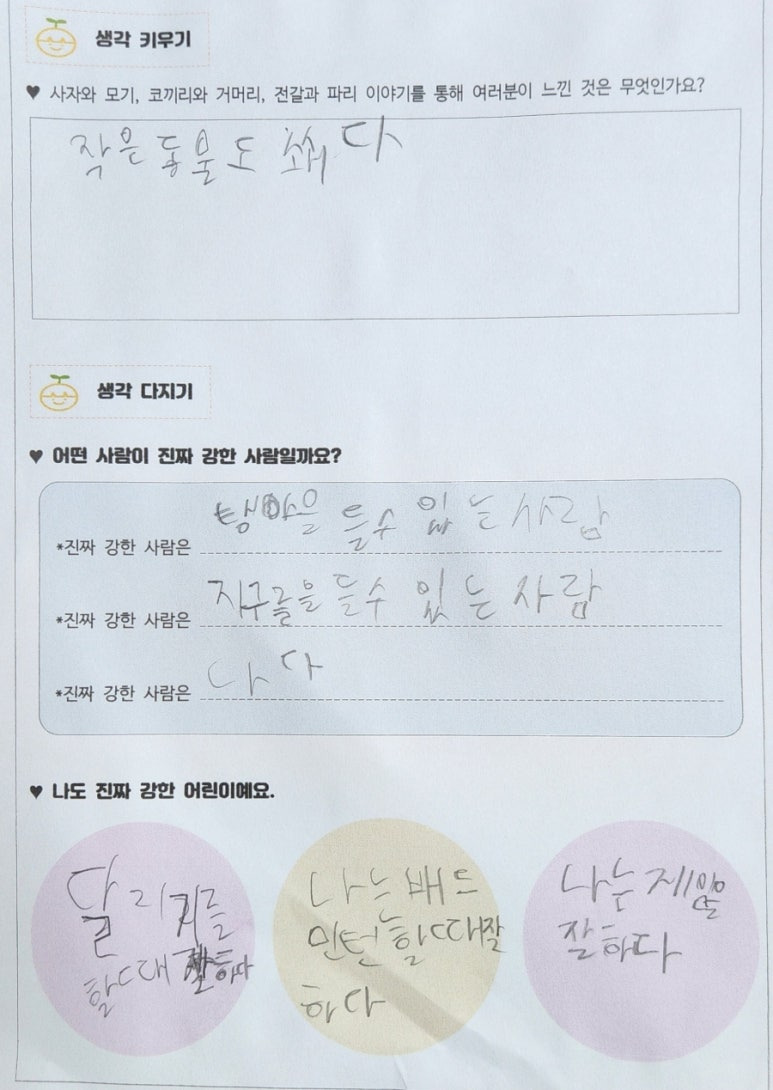 생각 키우기
♥ 사자와 모기, 코끼리와 거머리, 전갈과 파리 이야기를 통해 여러분이 느낀 것은 무엇인가요?
작은 동물도 쎄다
생각 다지기
♥ 어떤 사람이 진짜 강한 사람일까요?
*진짜 강한 사람은 들수 있는 사람
*진짜 강한 사람은 지구를을 들수 있는 사람
*진짜 강한 사람은 나다
♥ 나도 진짜 강한 어린이예요.
달리기를
할때 잘하다
나는 배드
민턴할때잘
하다
나는 제일
잘하다